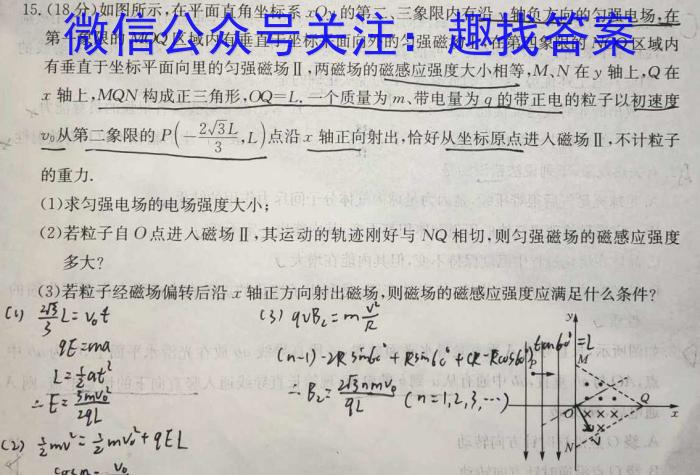 15.(18分)如图所示,在平面直角坐标系xOy的第二、三象限内有沿y轴负方向的匀强电场,在
微信公众号关注：趣找答案
第一象限的MOQ区域内有垂直于坐标平面向外的匀强磁场Ⅰ,在第四象限的NOQ区域内
有垂直于坐标平面向里的匀强磁场Ⅱ,两磁场的磁感应强度大小相等,M、N在y轴上,Q在
x轴上,MQN构成正三角形,OQ=L.一个质量为m、带电量为q的带正电的粒子以初速度
v₀从第二象限的P(-2√3L/3,L)点沿x轴正向射出,恰好从坐标原点进入磁场Ⅱ,不计粒子
的重力.
(1)求匀强电场的电场强度大小;
(2)若粒子自O点进入磁场Ⅱ,其运动的轨迹刚好与NQ相切,则匀强磁场的磁感应强度
多大?
(3)若粒子经磁场偏转后沿x轴正方向射出磁场,则磁场的磁感应强度应满足什么条件?
(1) 2√3/3 L=v₀t
qE=ma
L=½at²
∴E=3mv₀²/2qL
(2) ½mv²=½mv₀²+qEL
(3) qvB₂=m v²/R
(n-1)·2R sin60°+R sin60°+(R-Rcos60°)tan60°=L
∴B₂=2√3nmv₀/qL (n=1,2,3,…)
y
M
O
Q
x
N
v